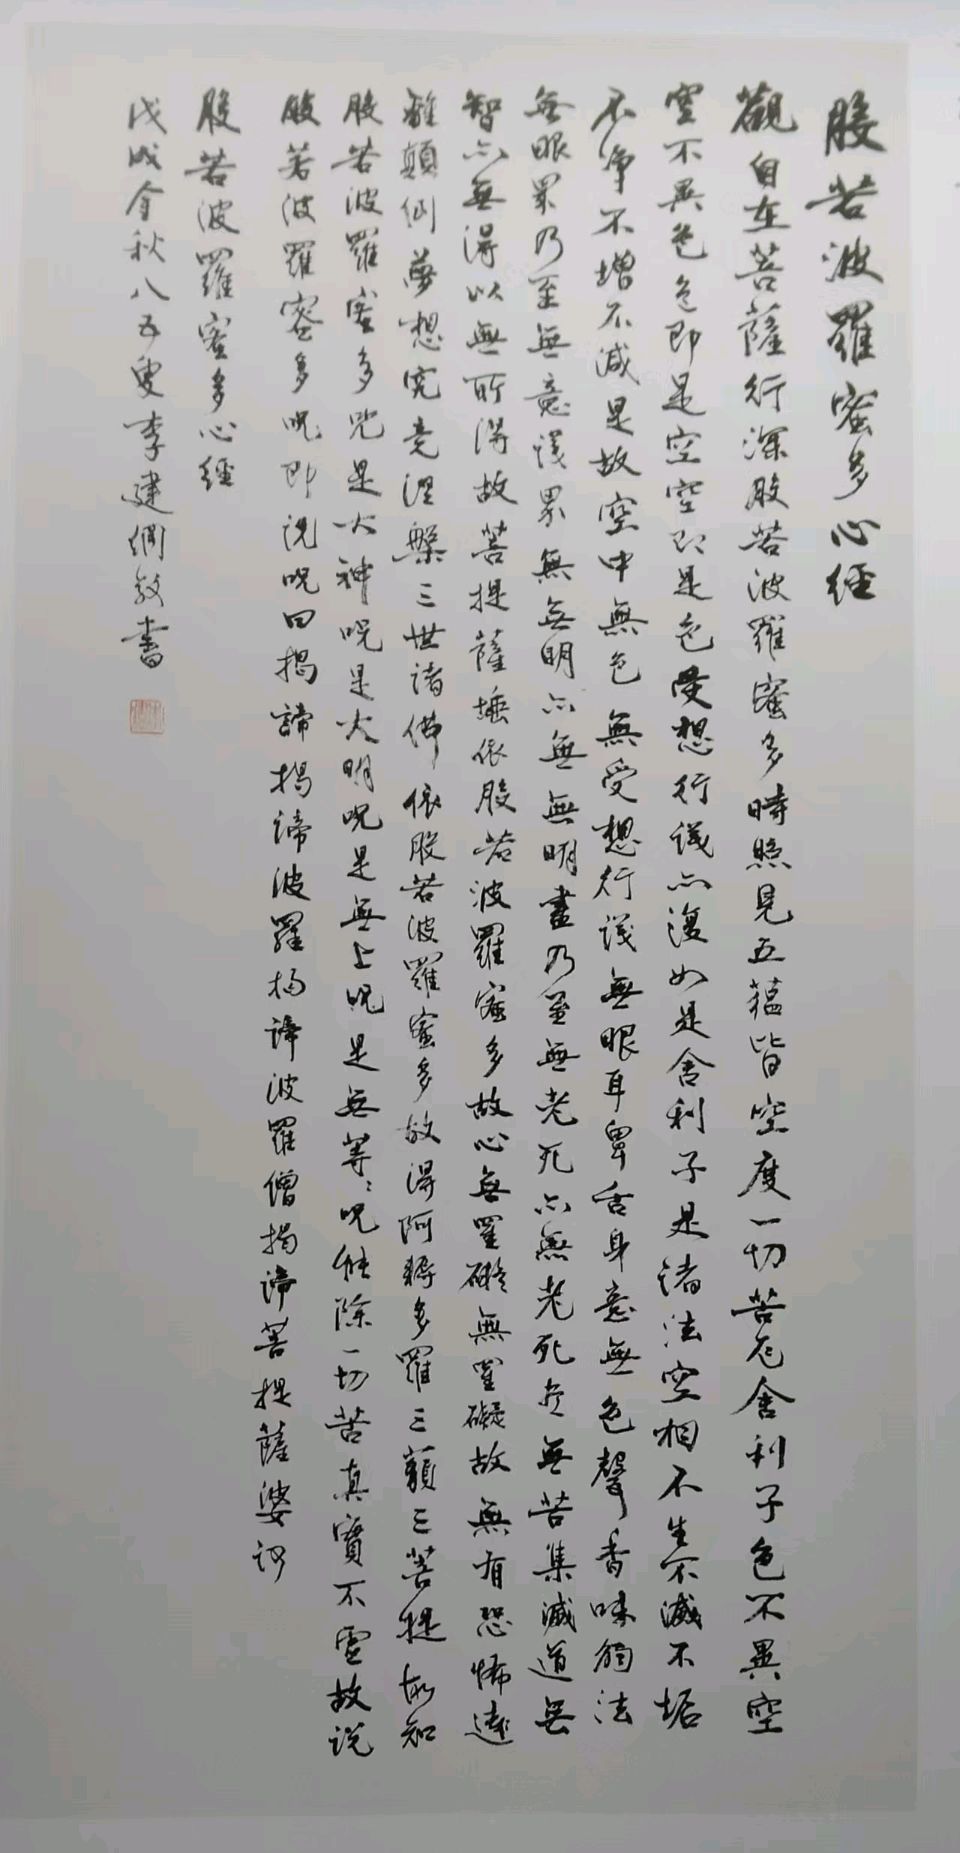 般若波羅蜜多心經
觀自在菩薩行深般若波羅蜜多時照見五蘊皆空度一切苦厄舍利子色不異空
空不異色色即是空空即是色受想行識亦復如是舍利子是諸法空相不生不滅不垢
不淨不增不減是故空中無色無受想行識無眼耳鼻舌身意無色聲香味觸法
無眼界乃至無意識界無無明亦無無明盡乃至無老死亦無老死盡無苦集滅道無
智亦無得以無所得故菩提薩埵依般若波羅蜜多故心無罣礙無罣礙故無有恐怖遠
離顛倒夢想究竟涅槃三世諸佛依般若波羅蜜多故得阿耨多羅三藐三菩提故知
般若波羅蜜多咒是大神呪是大明呪是無上呪是無等々呪能除一切苦真實不虛故说
般若波羅蜜多呪即说呪曰揭諦揭諦波羅揭諦波羅僧揭諦菩提薩婆訶
般若波羅蜜多心經
戊戌金秋八五叟李建敬書